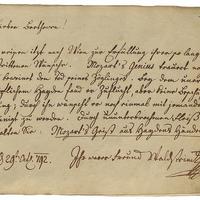 Lieber Beethowen!
reisen itzt nach Wien zur Erfüllung ihrer so lange
strittenen Wünsche. Mozart's Genius trauert noch
beweinet den Tod seines Zöglinges. Bey dem uner
pflichem Hayden fand er Zuflucht, aber keine Beschäf
ung; durch ihn wünscht er noch einmal mit jemanden
einigt zu werden. Durch ununterbrochenen Fleiß
alten Sie: Mozart's Geist aus Haydens Händen
d 29t Oct. 792. Ihr warer Freund Waldstein